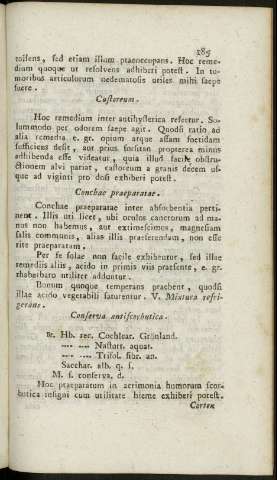 185
toësens, sed etiam illum praeoccupans. Hoc reme-
dium quoque ut resolvens adhiberi potest. In tu-
moribus articulorum oedematosis utiles misti saepe
fuere.
Castoreum.
Hoc remedium inter antihysterica refertur. So-
lummodo per odorem saepe agit. Quodsi ratio ad
alia remedia e. gr. opium atque assam foetidam
sufficiens desit, aut prius forsitan propterea minus
adhibenda esse videatur, quia illud facile obstru-
ctionem alvi pariat, castoreum a granis decem us-
que ad viginti pro dosi exhiberi potest.
Conchae praeparatae.
Conchae praeparatae inter absorbentia perti-
nent. Illis uti licet, ubi oculos cancrorum ad ma-
nus non habemus, aut extimescimus, magnesiam
salis communis, alias illis praeferendam, non esse
rite praeparatam.
Per se solae non facile exhibentur, sed illae
remediis aliis, acido in primis viis praesente, e. gr.
rhabarbaro utiliter adduntur.
Bonum quoque temperans praebent, quodsi
illae acido vegetabili saturentur. V. Mixtura refri-
gerans.
Conserva antiscorbutica.
℞. Hb. rec. Cochlear. Grönland.
— — Nasturt. aquat.
— — Trifol. fibr. an.
Sacchar. alb. q. s.
M. f. conserva. d.
Hoc praeparatum in acrimonia humorum scor-
butica insigni cum utilitate hieme exhiberi potest.
Cortex